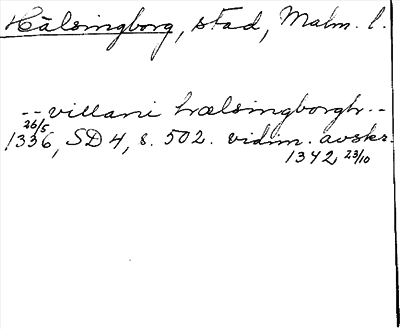 Hälsingborg, stad, Malm. l.
-- villani hælsingborgh --
26/5
1336, SD 4, s. 502. vidim. avskr.
1342 23/10